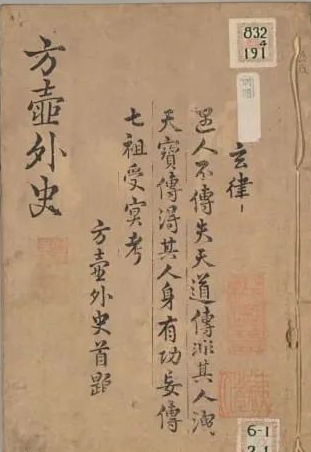 832
4
191
玄律
遇人不傳失天道傳非其人洩
天寶傳得其人身有功妄傳
七祖受冥考
方壺外史首題
方壺外史
6-1